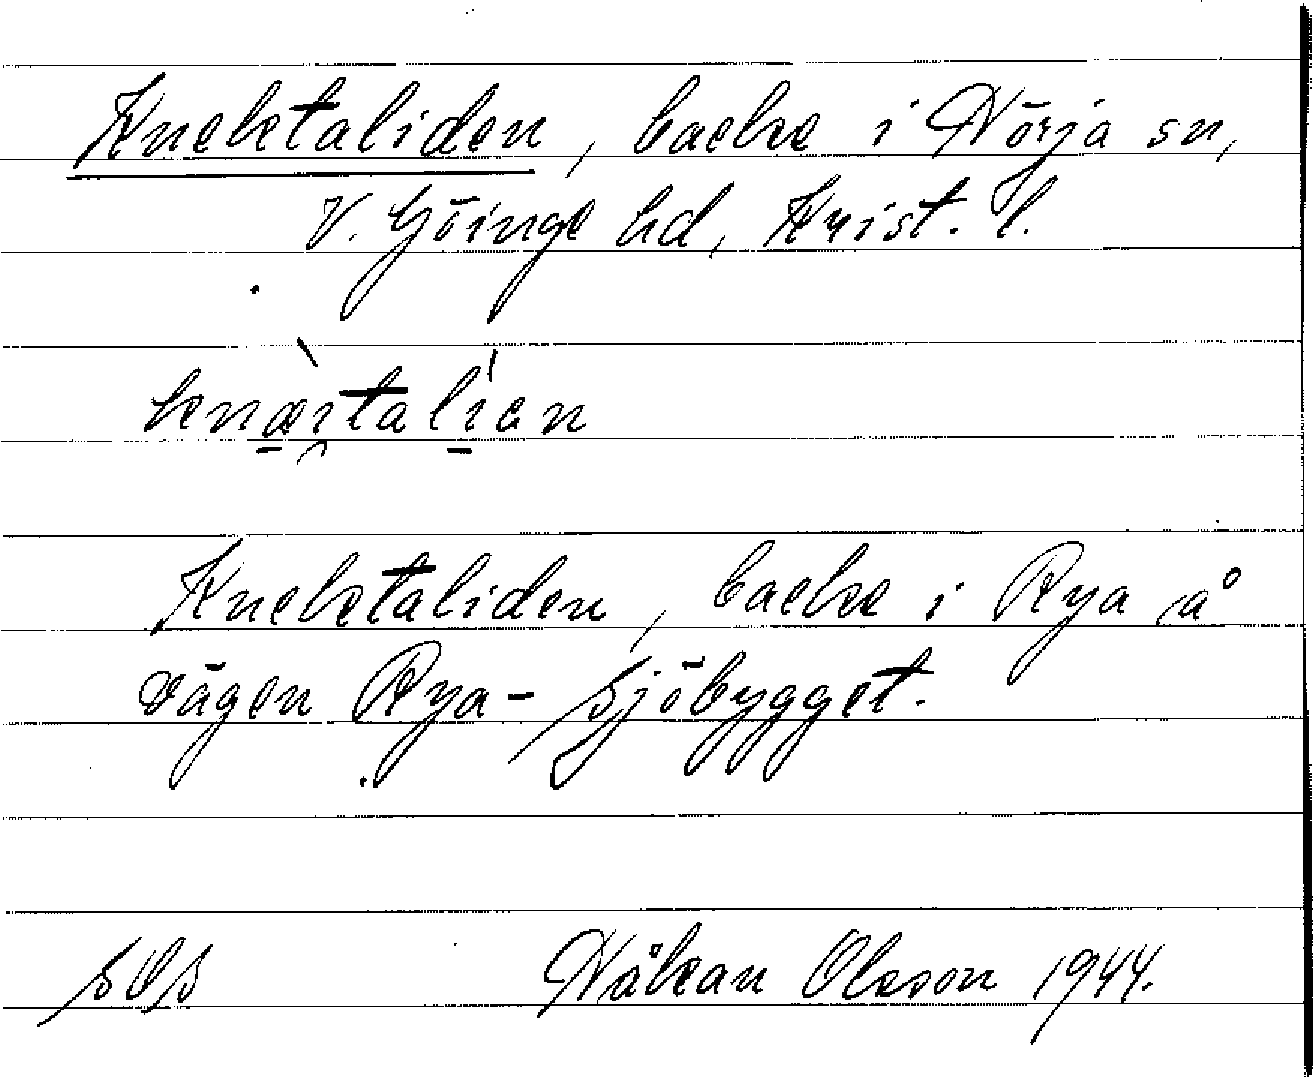 Knektaliden, backe i Nörja sn,
V. Göinge hd, Krist. l.
knæi̯talían
Knektaliden, backe i Rya å
vägen Rya - Sjöbygget.
SOS Håkan Olsson 1944.